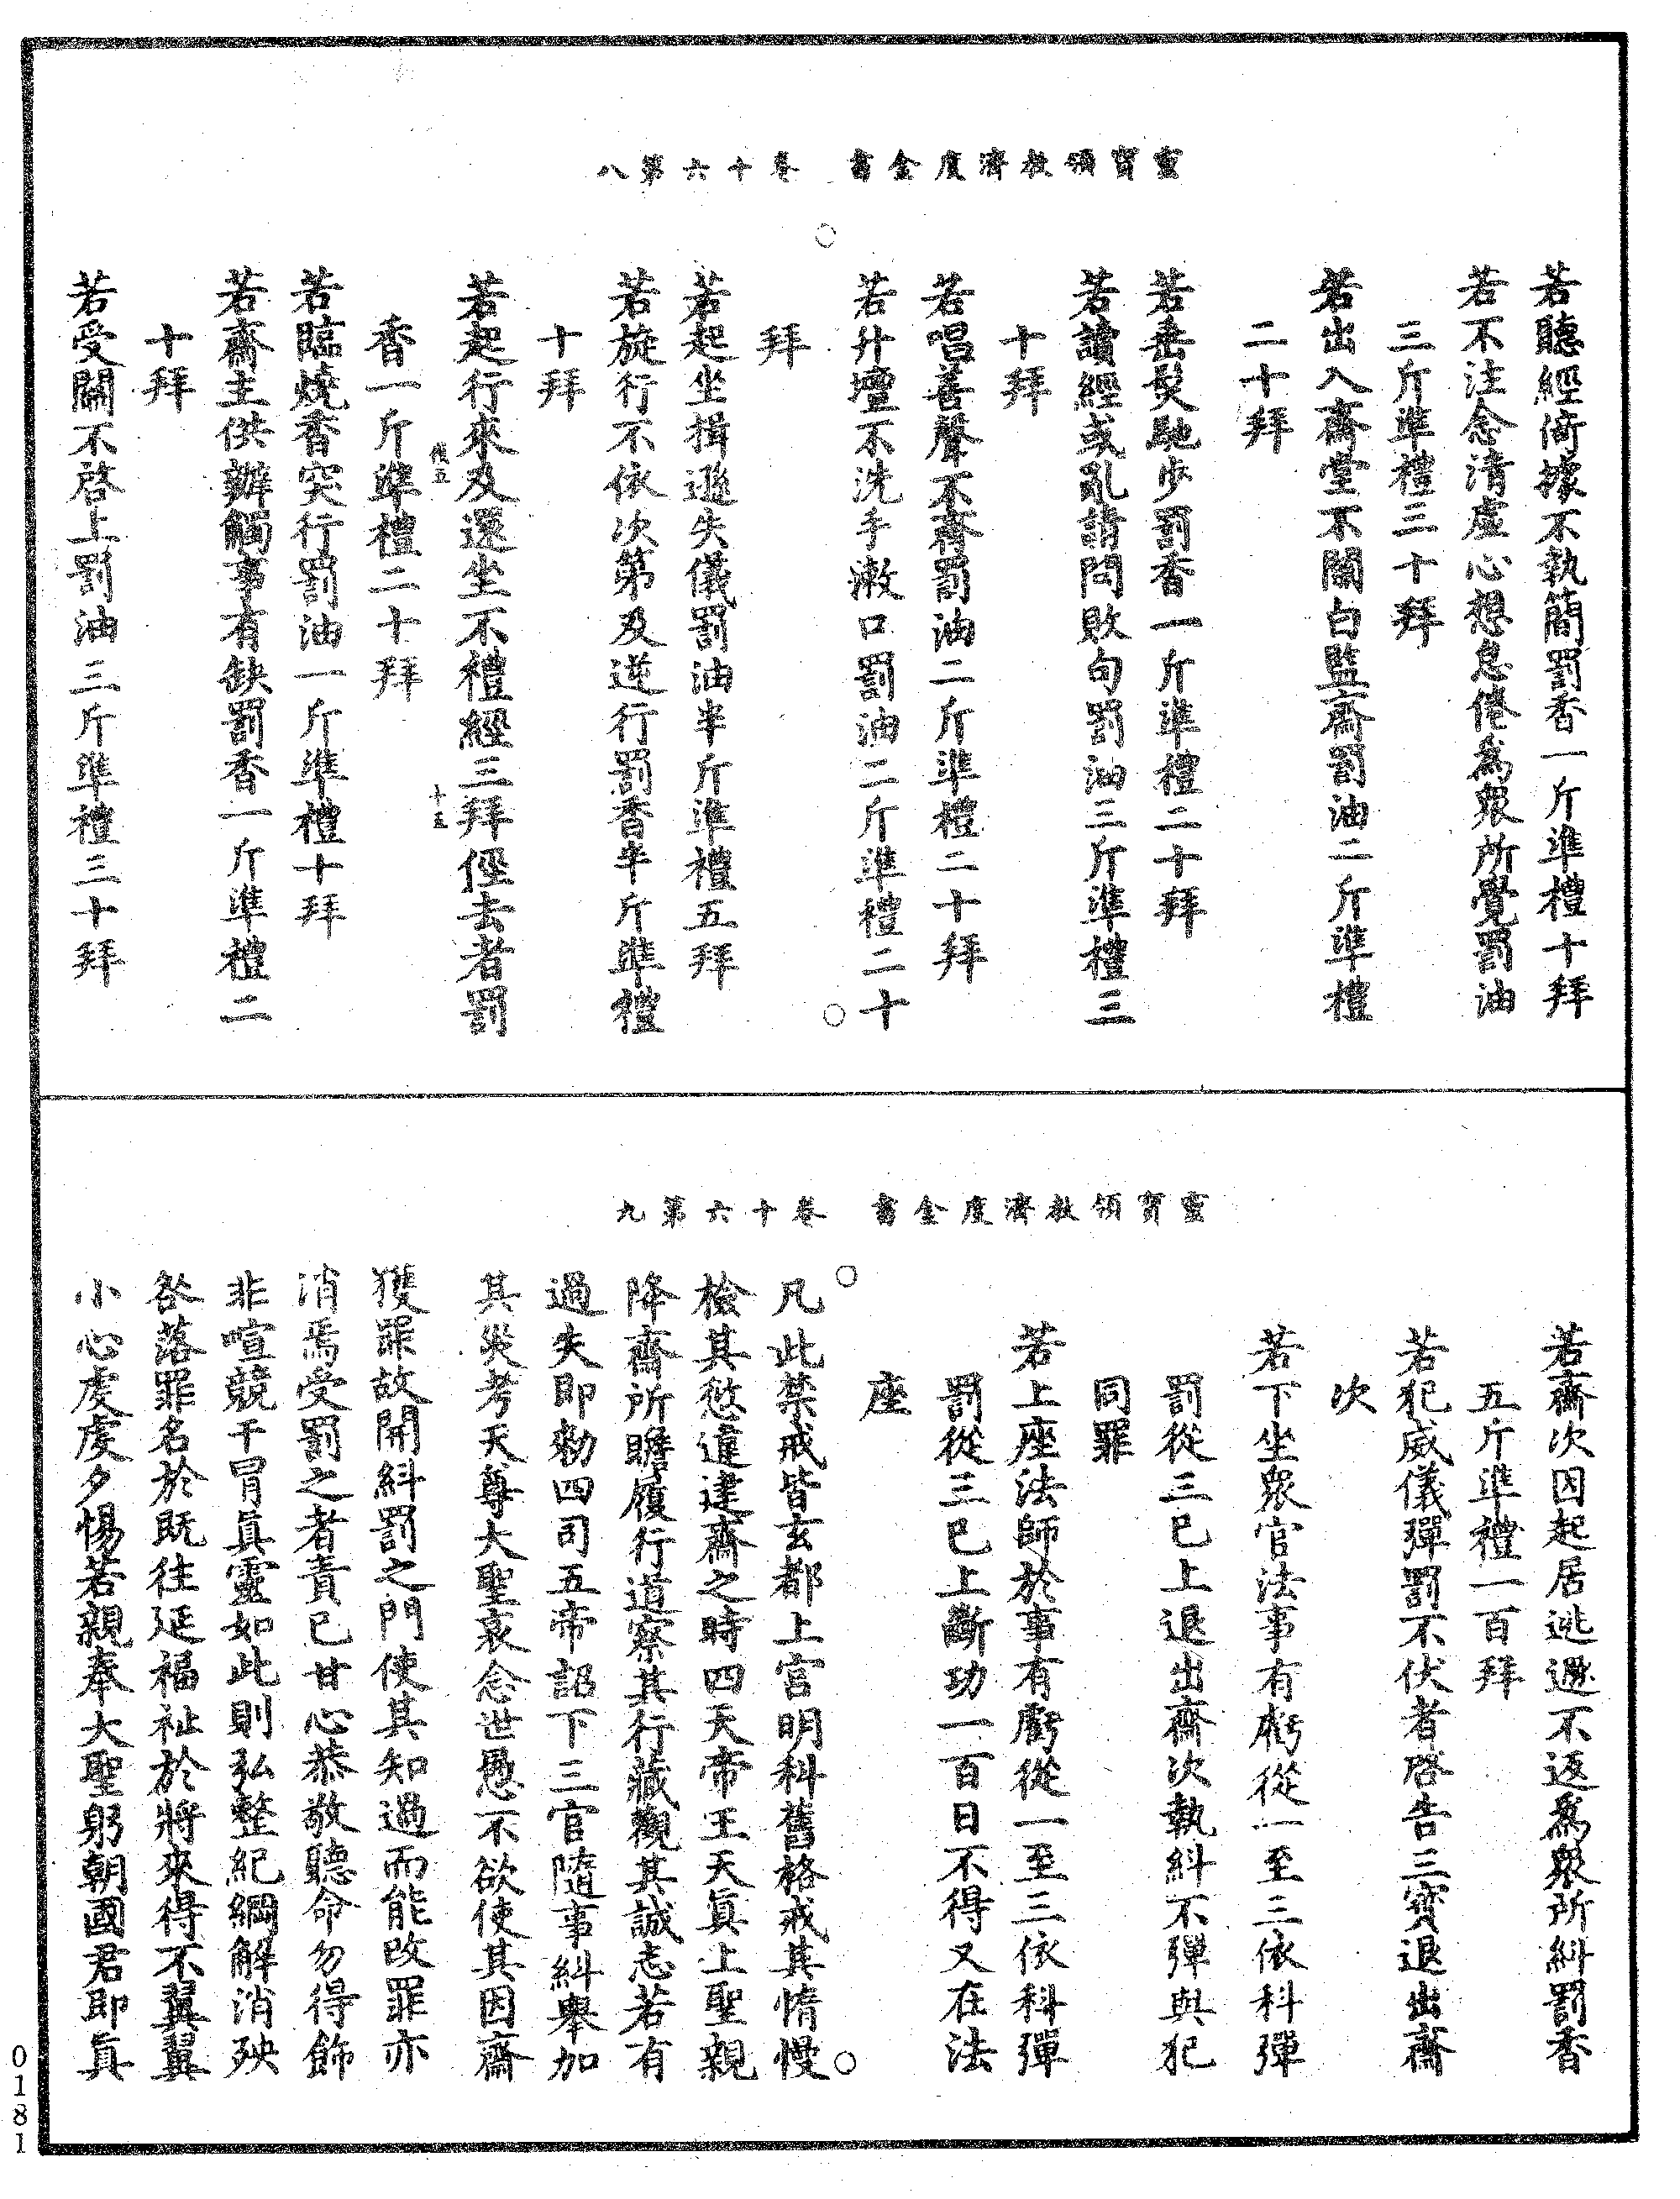 靈寶領教濟度金書　卷十六第八
若聽經倚據不執簡罰香一斤準禮十拜
若不注念清虛心想怠倦為衆所覺罰油
三斤準禮三十拜
若出入齋堂不關白監齋罰油二斤準禮
二十拜
若垂髮馳步罰香一斤準禮二十拜
若讀經或亂請問敗句罰油三斤準禮三
十拜
若唱善聲不齋罰油二斤準禮二十拜
若升壇不洗手漱口罰油二斤準禮二十
拜
若起坐揖遜失儀罰油半斤準禮五拜
若旋行不依次第及逆行罰香半斤準禮
十拜
若起行來及還坐不禮經三拜徑去者罰
香一斤準禮二十拜
若臨燒香突行罰油一斤準禮十拜
若齋主供辦觸事有缺罰香一斤準禮二
十拜
若受關不啓上罰油三斤準禮三十拜
靈寶領教濟度金書　卷十六第九
若齋次因起居逃遯不返為衆所糾罰香
五斤準禮一百拜
若犯威儀彈罰不伏者啓告三寶退出齋
次
若下坐衆官法事有虧從一至三依科彈
罰從三已上退出齋次執糾不彈與犯
同罪
若上座法師於事有虧從一至三依科彈
罰從三已上斷功一百日不得又在法
座
凡此禁戒皆玄都上宮明科舊格戒其惰慢
檢其愆違建齋之時四天帝王天眞上聖親
降齋所瞻履行道察其行藏觀其誠志若有
過失即勑四司五帝詔下三官隨事糾舉加
其災考天尊大聖哀念世愚不欲使其因齋
獲罪故開糾罰之門使其知過而能改罪亦
消焉受罰之者責已甘心恭敬聽命勿得飾
非喧競干冒眞靈如此則弘整紀綱解消殃
咎落罪名於既往延福祉於將來得不翼翼
小心虔虔夕惕若親奉大聖躬朝國君即眞
0181